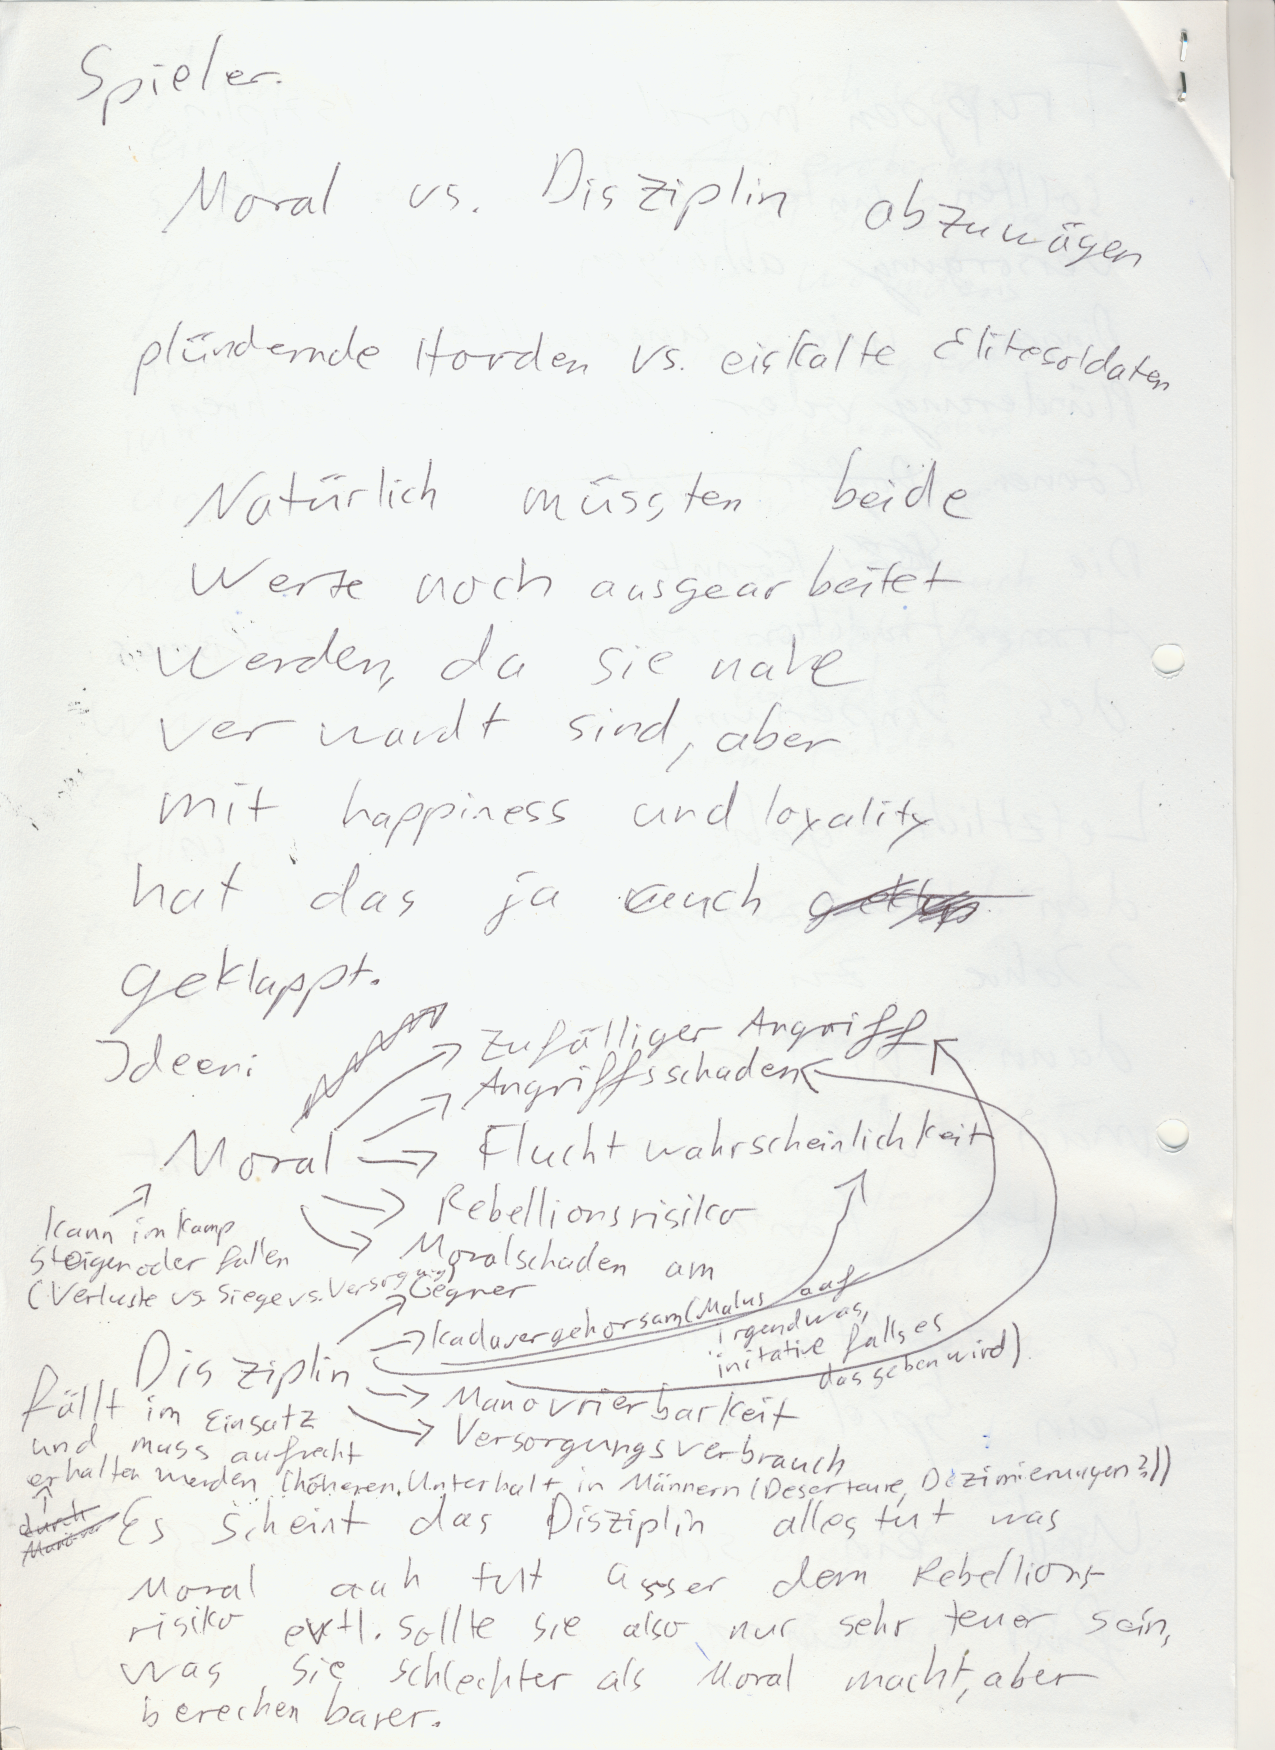 Spieler.
Moral vs. Disziplin abzuwägen
plündernde Horden vs. eiskalte Elitesoldaten
Natürlich müssten beide
Werte noch ausgearbeitet
werden, da sie nahe
verwandt sind, aber
mit happiness und loyality
hat das ja auch
geklappt.
Ideen:
Zufälliger Angriff
Angriffsschaden
Moral → Fluchtwahrscheinlichkeit
Rebellionsrisiko
Moralschaden am
Gegner
kann im Kamp
steigen oder fallen
(Verluste vs. Siege vs. Versorgung)
Disziplin
Kadavergehorsam (Malus auf
irgendwas,
initative falls es
das geben wird)
Manovrierbarkeit
Versorgungsverbrauch
fällt im Einsatz
und muss aufrecht
erhalten werden (höheren Unterhalt in Männern (Deserteure, Dezimierungen?))
durch
Manöver
Es scheint das Disziplin alles tut was
Moral auh tut ausser dem Rebellions
risiko evtl. sollte sie also nur sehr teuer sein,
was sie schlechter als Moral macht, aber
berechenbarer.